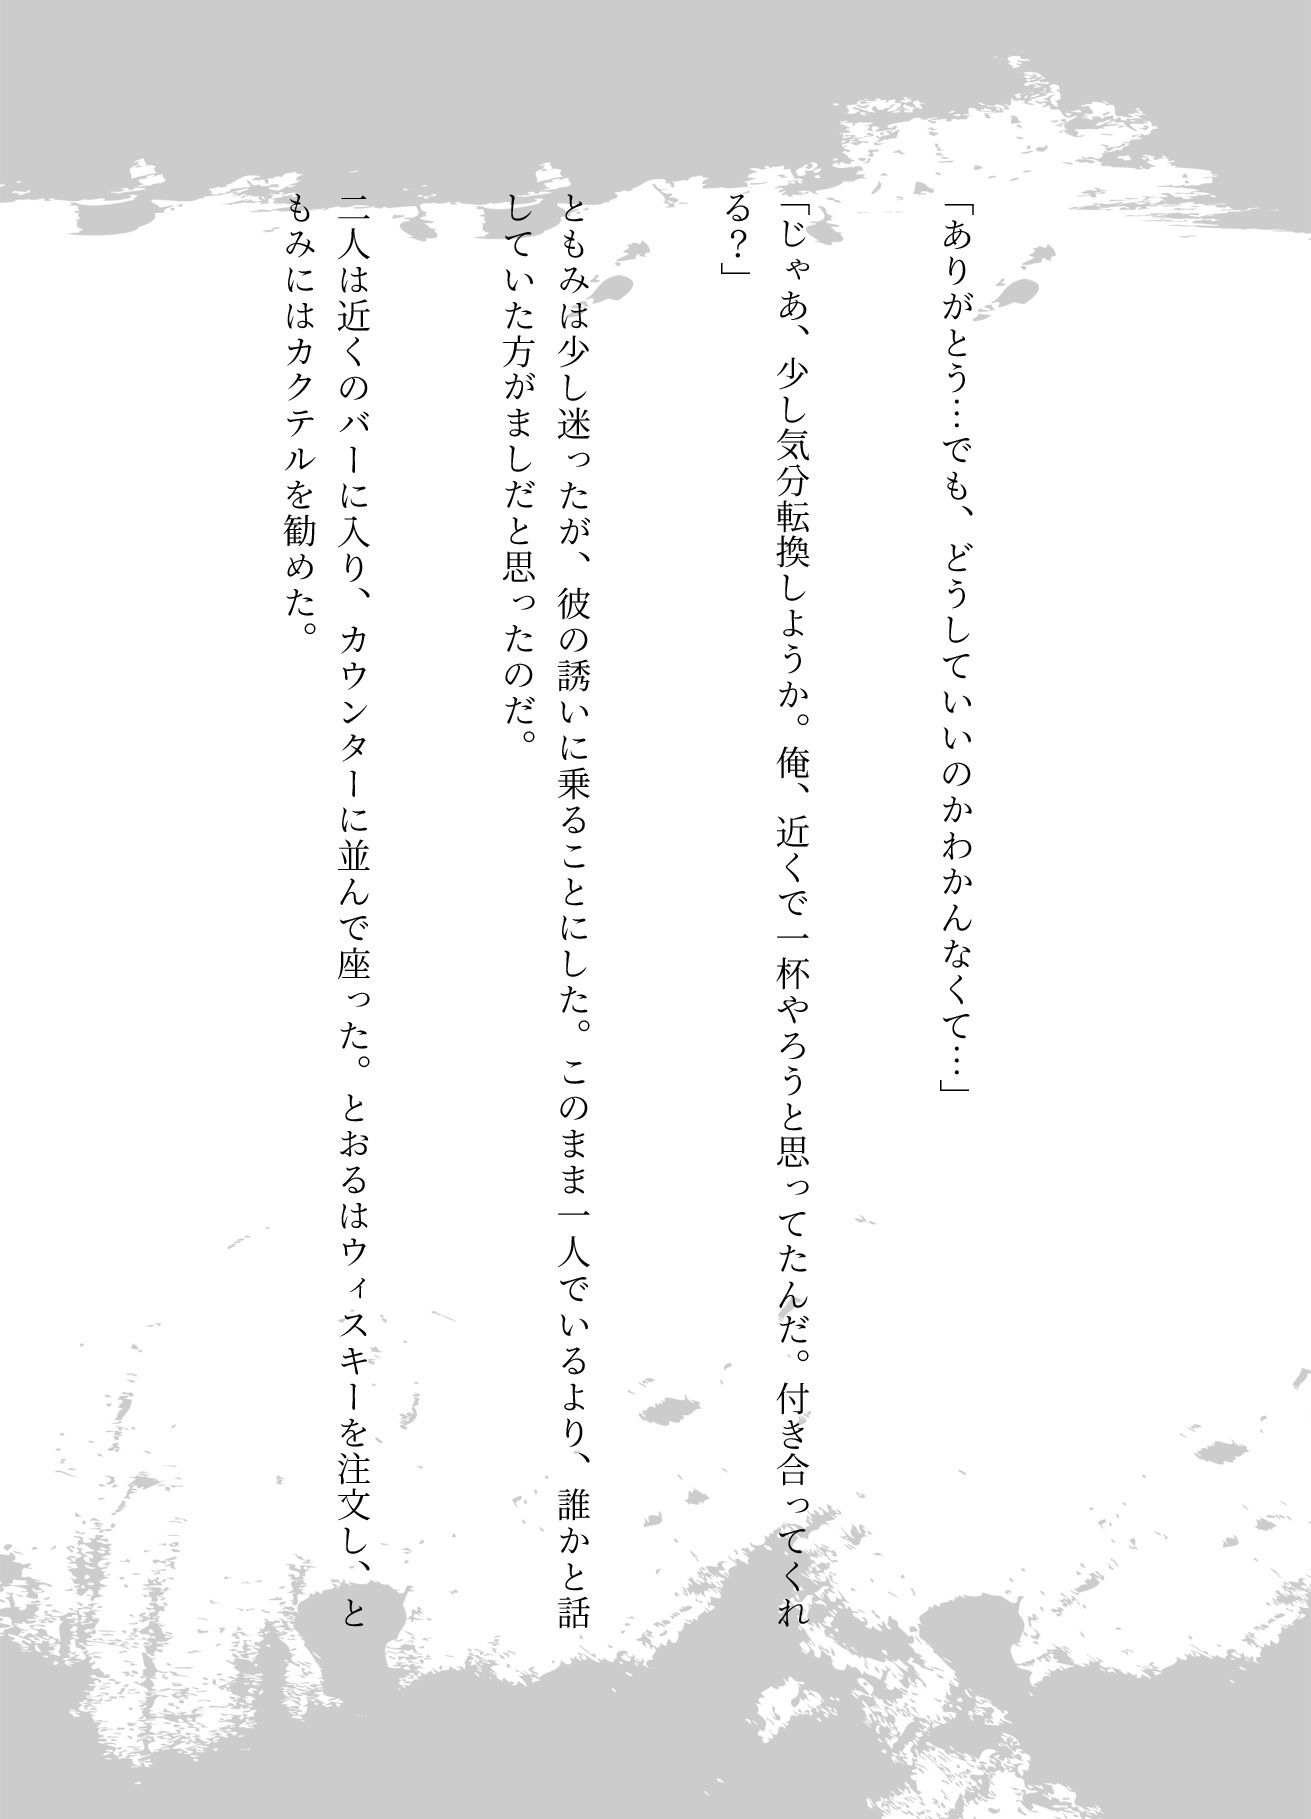 「ありがとう…でも、どうしていいのかわかんなくて…」
「じゃあ、少し気分転換しようか。俺、近くで一杯やろうと思ってたんだ。付き合ってくれ
る？」
ともみは少し迷ったが、彼の誘いに乗ることにした。このまま一人でいるより、誰かと話
していた方がましだと思ったのだ。
二人は近くのバーに入り、カウンターに並んで座った。とおるはウィスキーを注文し、と
もみにはカクテルを勧めた。